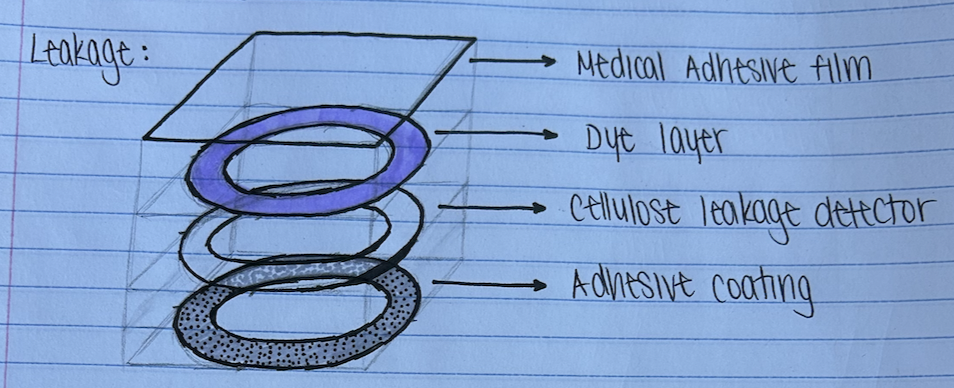 Leakage:
Medical Adhesive film
Dye layer
Cellulose leakage detector
Adhesive coating